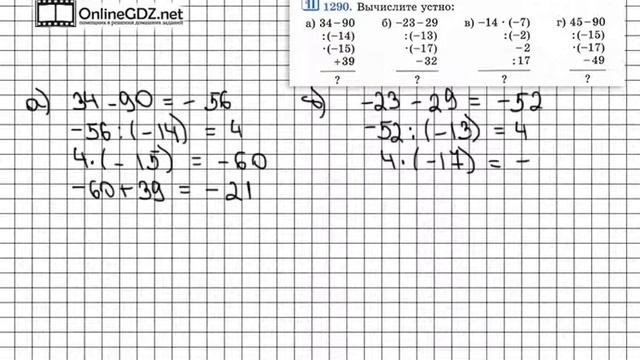 OnlineGDZ.net
помощник в решении домашних заданий
1290. Вычислите устно:
а) 34 – 90 б) –23 – 29 в) –14 · (–7) г) 45 – 90
:(–14) :(–13) :(–2) :(–15)
·(–15) ·(–17) –2 ·(–17)
+39 –32 :17 –49
? ? ? ?
а) 34 - 90 = - 56
-56 : (-14) = 4
4·(-15) = -60
-60+39 = -21
б) -23 - 29 = -52
-52 : (-13) = 4
4·(-17) = -